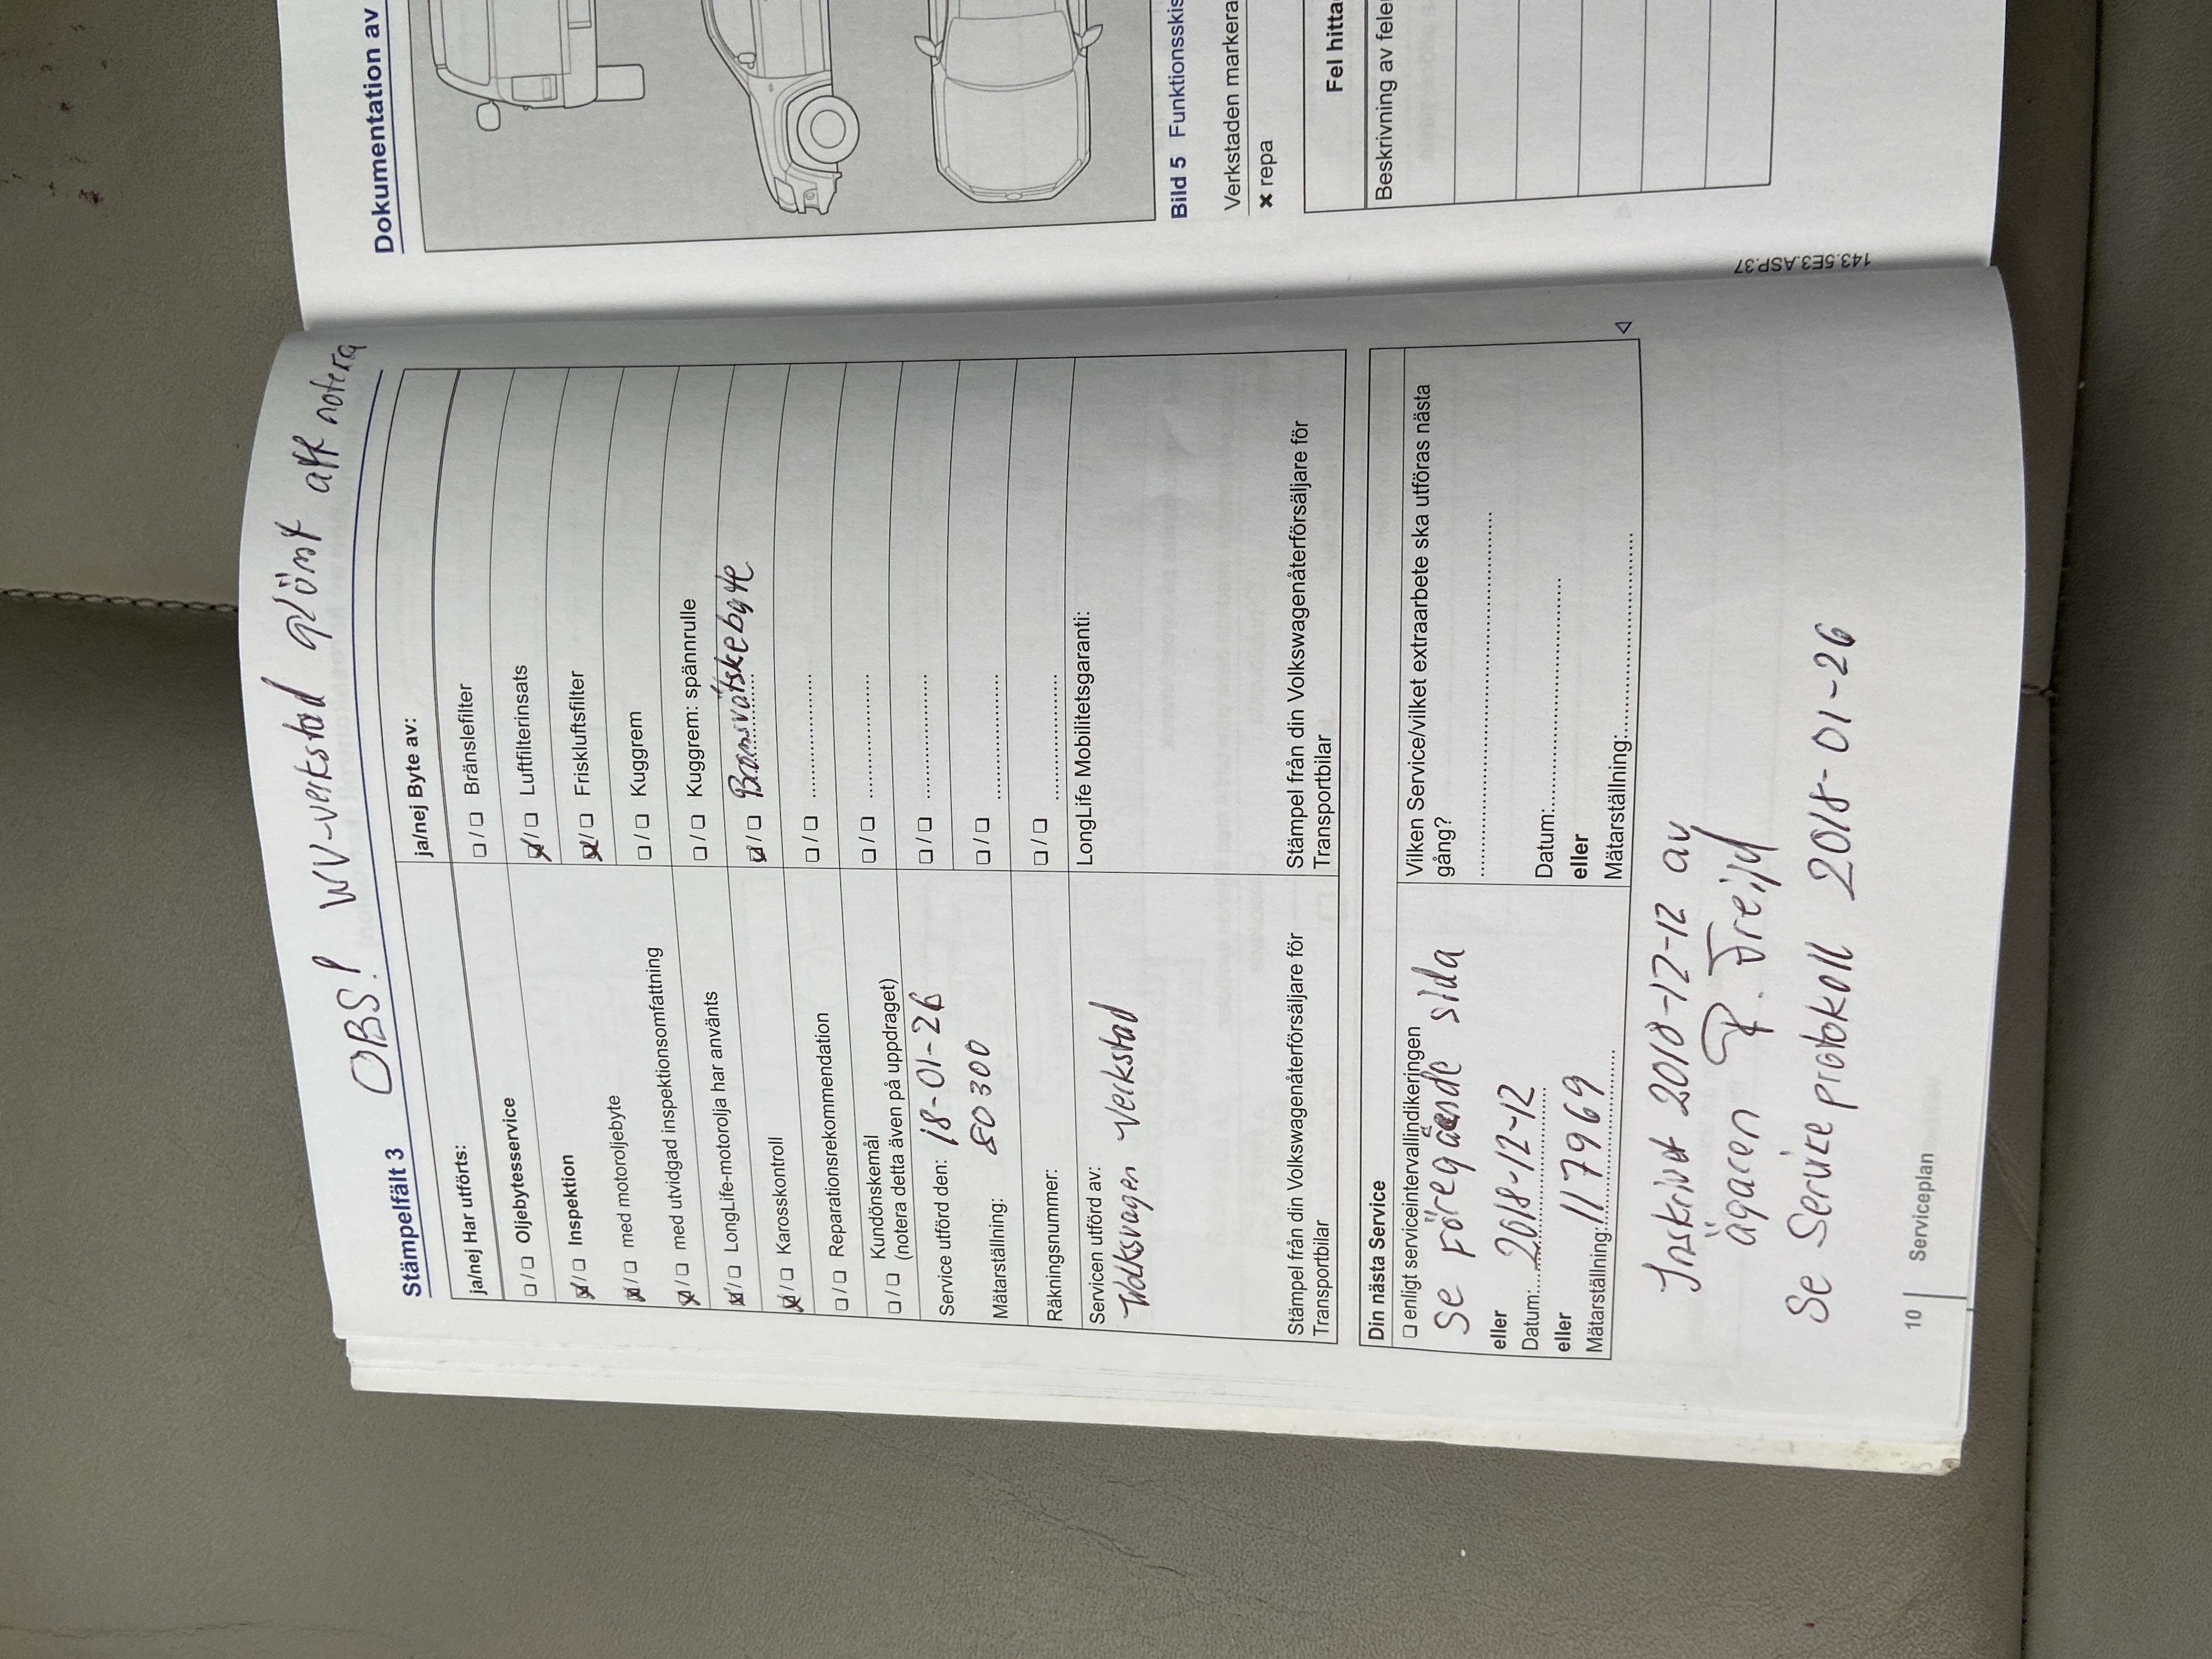 OBS! WV-verkstad glömt att notera
Stämpelfält 3
ja/nej Har utförts:
☐/☐ Oljebytesservice
☒/☐ Inspektion
☒/☐ med motoroljebyte
☒/☐ med utvidgad inspektionsomfattning
☒/☐ LongLife-motorolja har använts
☒/☐ Karosskontroll
☐/☐ Reparationsrekommendation
☐/☐ Kundönskemål
(notera detta även på uppdraget)
Service utförd den: 18-01-26
Mätarställning: 80300
Räkningsnummer:
Servicen utförd av:
Volksvagen verkstad
Stämpel från din Volkswagenåterförsäljare för
Transportbilar
ja/nej Byte av:
☐/☐ Bränslefilter
☒/☐ Luftfilterinsats
☒/☐ Friskluftsfilter
☐/☐ Kuggrem
☐/☐ Kuggrem: spännrulle
☒/☐ Bromsvätskebyte
☐/☐ ....................
☐/☐ ....................
☐/☐ ....................
☐/☐ ....................
☐/☐ ....................
LongLife Mobilitetsgaranti:
Stämpel från din Volkswagenåterförsäljare för
Transportbilar
Din nästa Service
☐ enligt serviceintervallindikeringen
Se Föregående sida
eller
Datum: 2018-12-12
eller
Mätarställning: 117969
Vilken Service/vilket extraarbete ska utföras nästa
gång?
Datum:....................
eller
Mätarställning:....................
Inskrivet 2018-12-12 av
ägaren
Se Service protokoll 2018-01-26
10 Serviceplan
Dokumentation av
Bild 5 Funktionsskis
Verkstaden markera
✖ repa
Fel hitta
Beskrivning av feler
143.5E3.ASP.37